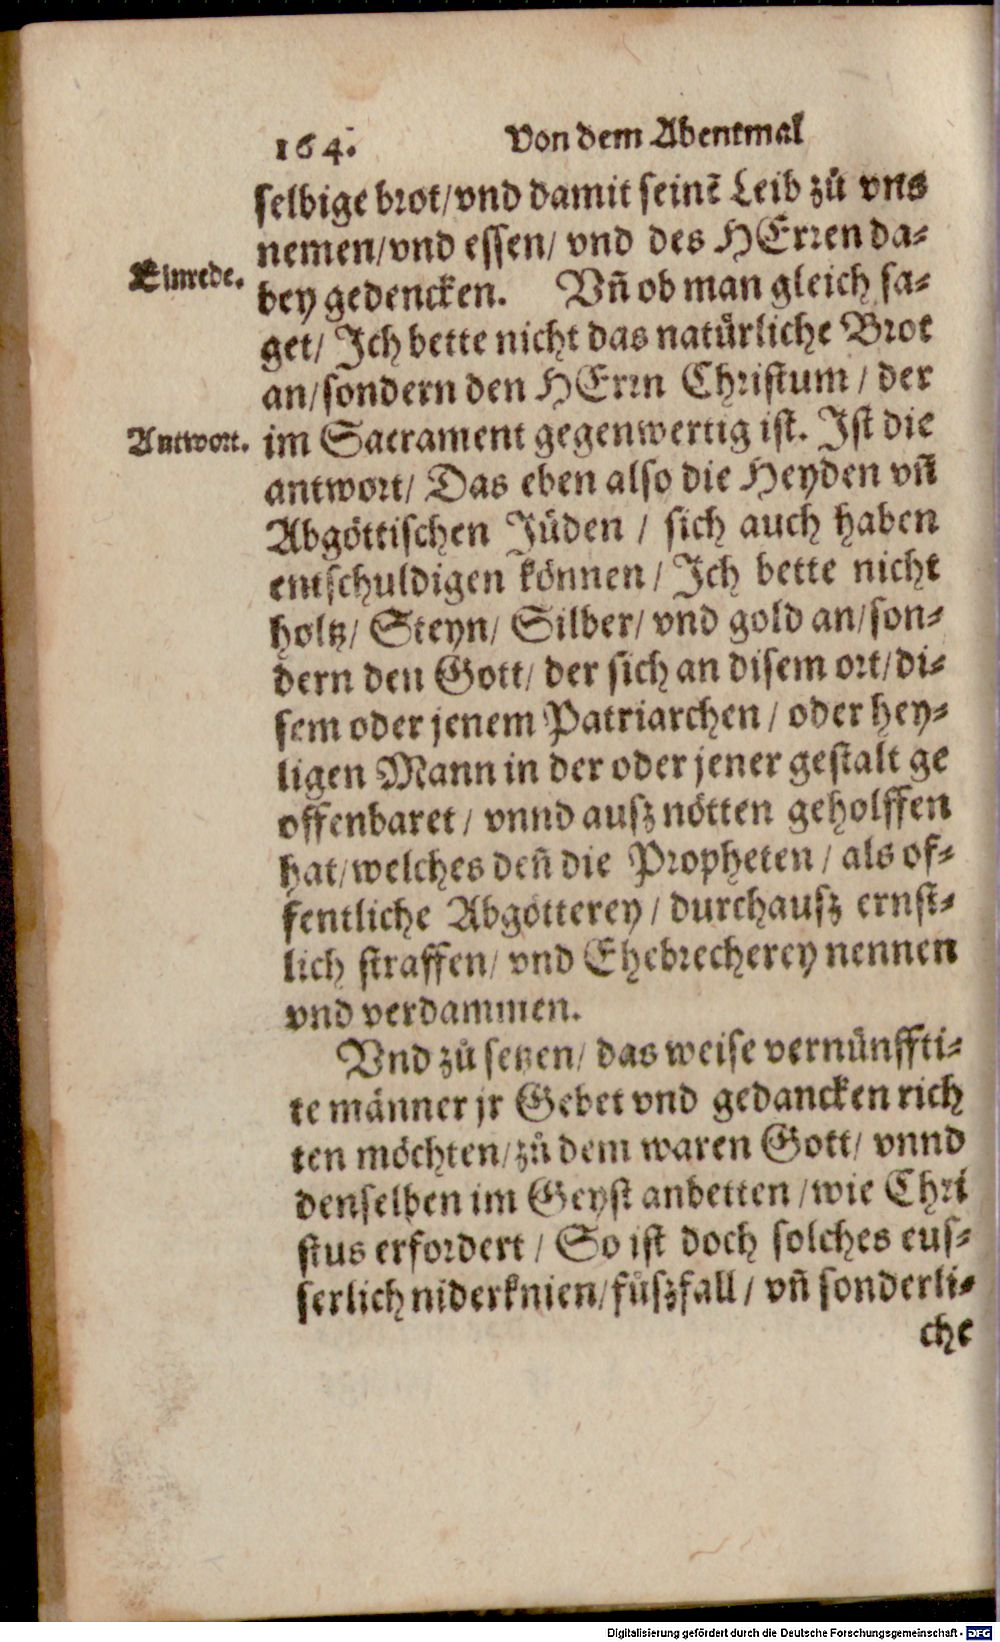 164. Von dem Abentmal
selbige brot/vnd damit seinē Leib zů vns
nemen/vnd essen/ vnd des HErren da⸗
Einrede.
bey gedencken. Vñ ob man gleich sa⸗
get/ Ich bette nicht das natürliche Brot
an/sondern den HErrn Christum / der
Antwort.
im Sacrament gegenwertig ist. Ist die
antwort/ Das eben also die Heyden vñ
Abgöttischen Jüden / sich auch haben
entschuldigen können / Ich bette nicht
holtz/ Steyn/ Silber/ vnd gold an/son⸗
dern den Gott/ der sich an disem ort/di⸗
sem oder jenem Patriarchen / oder hey⸗
ligen Mann in der oder jener gestalt ge
offenbaret / vnnd ausz nötten geholffen
hat/welches deñ die Propheten / als of⸗
fentliche Abgötterey / durchausz ernst⸗
lich straffen/ vnd Ehebrecherey nennen
vnd verdammen.
Vnd zů setzen/ das weise vernünffti⸗
te männer jr Gebet vnd gedancken rich
ten möchten/zů dem waren Gott/ vnnd
denselben im Geyst anbetten /wie Chri
stus erfordert / So ist doch solches eus⸗
serlich niderknien/fůszfall / vñ sonderli⸗
che
Digitalisierung gefördert durch die Deutsche Forschungsgemeinschaft - DFG